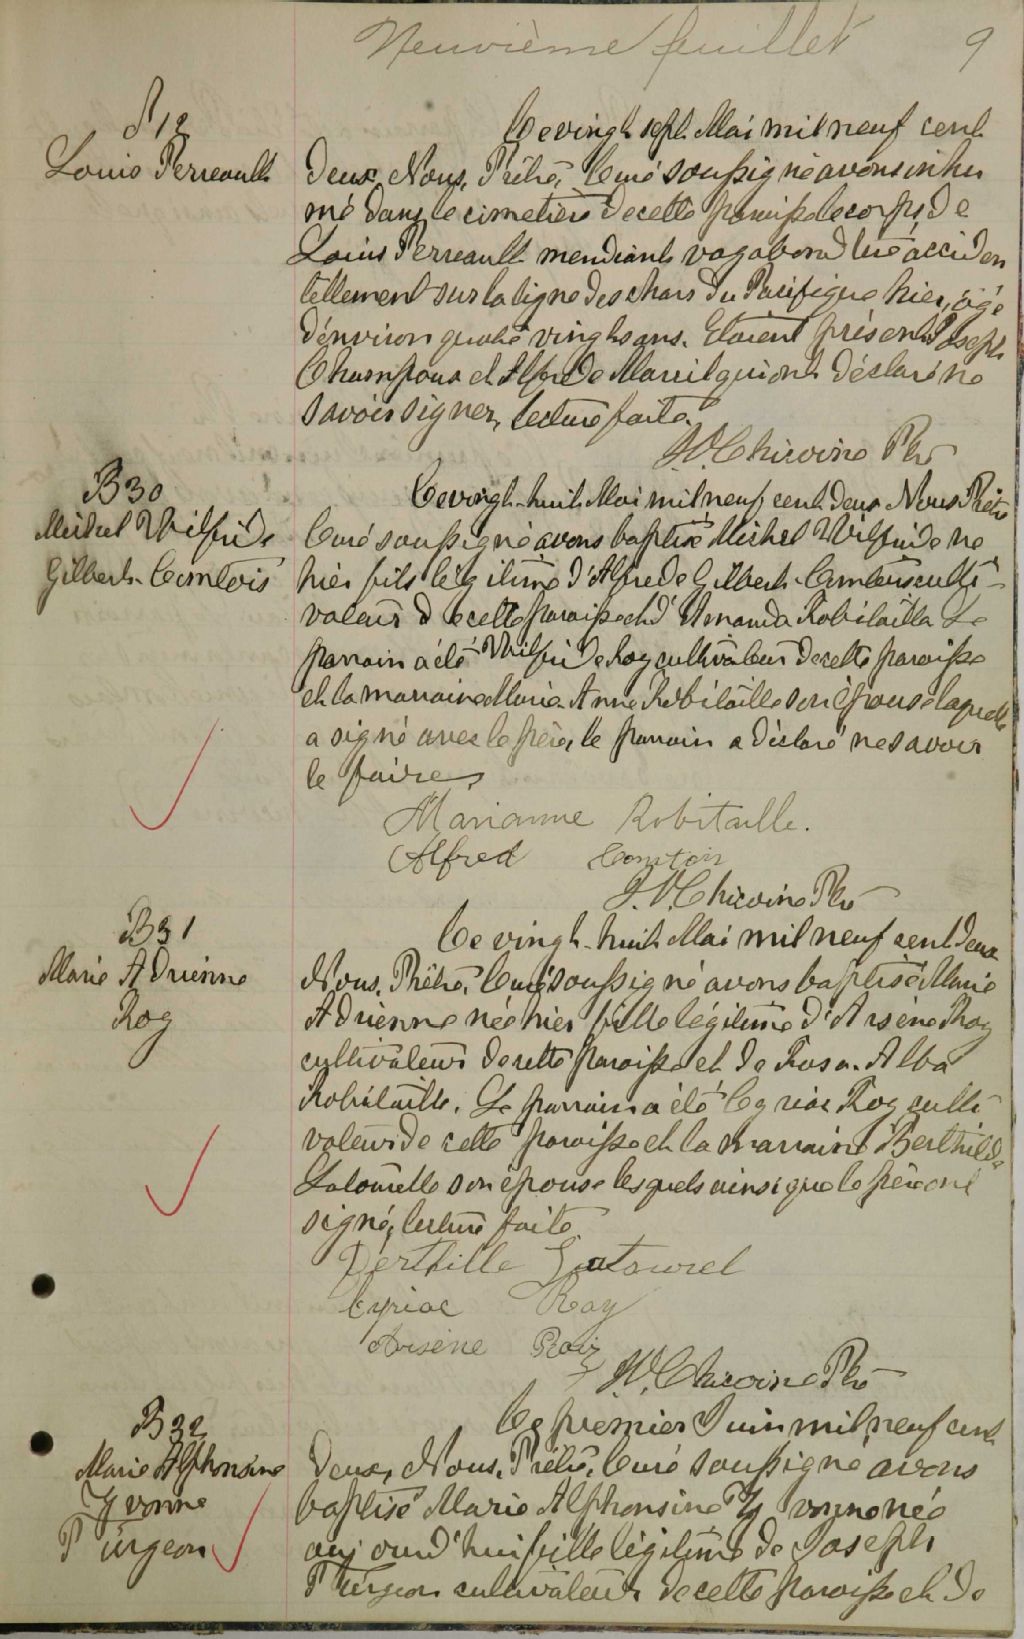 Neuvième feuillet 9
S 12
Louis Perreault
Ce vingt sept Mai mil neuf cent
deux, Nous, Prêtre, Curé soussigné avons inhu
mé dans le cimetière de cette paroisse le corps de
Louis Perreault mendiant vagabond tué acciden
tellement sur la ligne des chars du Pacifique hier, âgé
d'environ quatre vingts ans. Étaient présents Joseph
Champoux et Alfred Marcil qui ont déclaré ne
savoir signer, lecture faite.
Chicoine Ptre
B 30
Michel Wilfride
Gilbert Comtois
Ce vingt-huit Mai mil neuf cent deux Nous Prêtre
Curé soussigné avons baptisé Michel Wilfride né
hier fils légitime d'Alfred Gilbert-Comtois culti-
vateur de cette paroisse et d'Amanda Robitaille Le
parrain a été Wilfride Roy cultivateur de cette paroisse
et la marraine Marie-Anne Robitaille son épouse laquelle
a signé avec le père, le parrain a déclaré ne savoir
le faire
Marianne Robitaille.
Alfred Comtois
Chicoine Ptre
B 31
Marie Adrienne
Roy
Ce vingt-huit Mai mil neuf cent deux
Nous, Prêtre, Curé soussigné avons baptisé Marie
Adrienne née hier fille légitime d'Arsène Roy
cultivateur de cette paroisse et de Rosa-Alba
Robitaille. Le parrain a été Cyriac Roy culti-
vateur de cette paroisse et la marraine Berthilde
Latourelle son épouse lesquels ainsi que le père ont
signé, lecture faite
Berthille Latourel
Cyriac Roy
Arsène Roy
Chicoine Ptre
B 32
Marie Alphonsine
Yvonne
Turgeon
Ce premier Juin mil neuf cent
deux, Nous, Prêtre, Curé soussigné avons
baptisé Marie Alphonsine Yvonne née
aujourd'hui fille légitime de Joseph
Turgeon cultivateur de cette paroisse et de